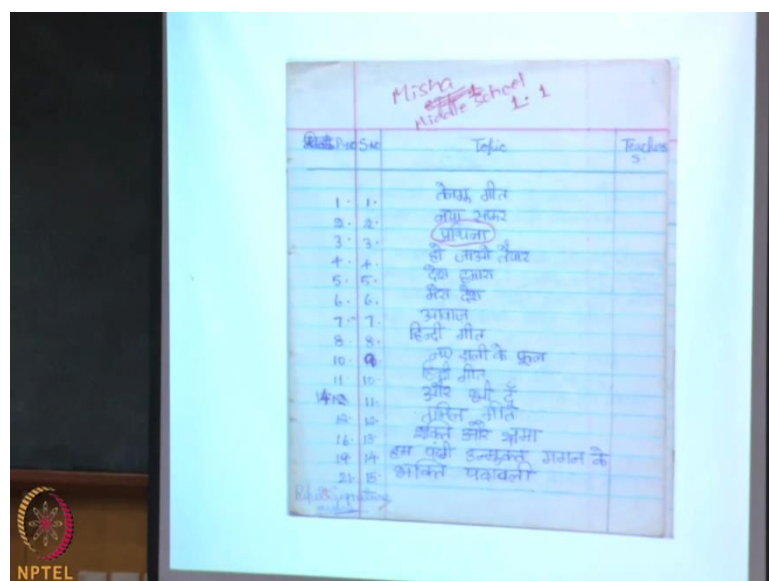 Misha
Middle School
1. 1
P.NO S.NO Topic Teacher S.
1. 1. तेलगू गीत
2. 2. नया सफर
3. 3. प्राथना
4. 4. हो जाओ तैयार
5. 5. देश हमारा
6. 6. मेरा देश
7. 7. आवाज
8. 8. हिन्दी गीत
10. 9. नए डाली के फूल
11 10. हिन्दी गीत
11. और भी दूँ
12. 12. तमिल गीत
16. 13 शक्ति और क्षमा
19. 14. हम पंछी उन्मुक्त गगन के
21. 15. भक्ति पदावली
NPTEL